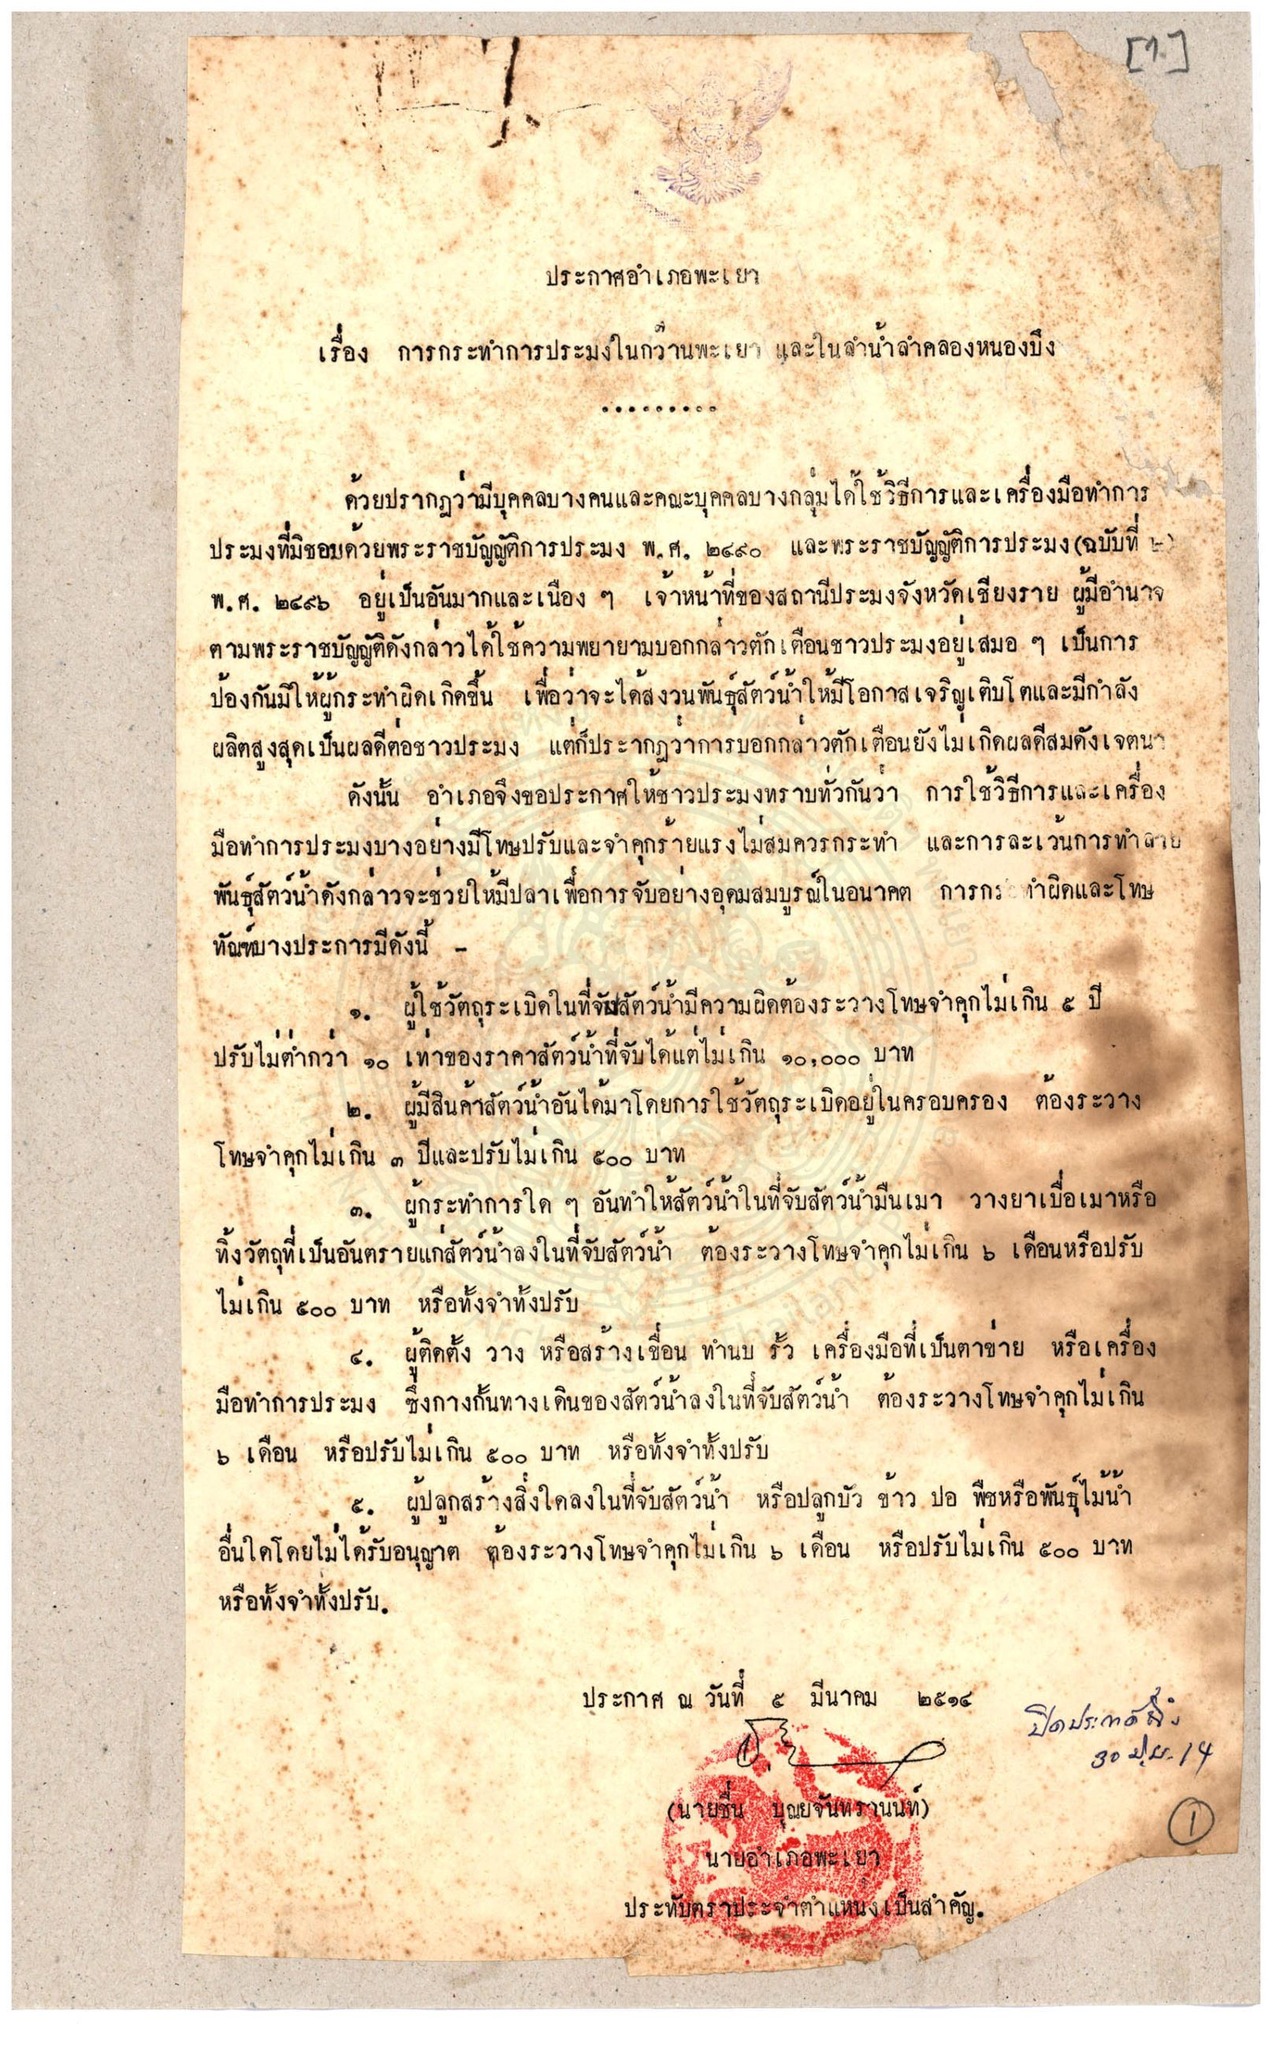 [1]
ประกาศอำเภอพะเยา
เรื่อง การกระทำการประมงในกว๊านพะเยา และในลำน้ำลำคลองหนองบึง
.........
ด้วยปรากฏว่ามีบุคคลบางคนและคณะบุคคลบางกลุ่มได้ใช้วิธีการและเครื่องมือทำการ
ประมงที่มิชอบด้วยพระราชบัญญัติการประมง พ.ศ. ๒๔๙๐ และพระราชบัญญัติการประมง(ฉบับที่ ๒)
พ.ศ. ๒๔๙๖ อยู่เป็นอันมากและเนือง ๆ เจ้าหน้าที่ของสถานีประมงจังหวัดเชียงราย ผู้มีอำนาจ
ตามพระราชบัญญัติดังกล่าวได้ใช้ความพยายามบอกกล่าวตักเตือนชาวประมงอยู่เสมอ ๆ เป็นการ
ป้องกันมิให้ผู้กระทำผิดเกิดขึ้น เพื่อว่าจะได้สงวนพันธุ์สัตว์น้ำให้มีโอกาสเจริญเติบโตและมีกำลัง
ผลิตสูงสุดเป็นผลดีต่อชาวประมง แต่ก็ประากฏว่าการบอกกล่าวตักเตือนยังไม่เกิดผลดีสมดังเจตนา
ดังนั้น อำเภอจึงขอประกาศให้ชาวประมงทราบทั่วกันว่า การใช้วิธีการและเครื่อง
มือทำการประมงบางอย่างมีโทษปรับและจำคุกร้ายแรงไม่สมควรกระทำ และการละเว้นการทำลาย
พันธุ์สัตว์น้ำดังกล่าวจะช่วยให้มีปลาเพื่อการจับอย่างอุดมสมบูรณ์ในอนาคต การกระทำผิดและโทษ
ทัณฑ์บางประการมีดังนี้ -
๑. ผู้ใช้วัตถุระเบิดในที่จับสัตว์น้ำมีความผิดต้องระวางโทษจำคุกไม่เกิน ๕ ปี
ปรับไม่ต่ำกว่า ๑๐ เท่าของราคาสัตว์น้ำที่จับได้แต่ไม่เกิน ๑๐,๐๐๐ บาท
๒. ผู้มีสินค้าสัตว์น้ำอันได้มาโดยการใช้วัตถุระเบิดอยู่ในครอบครอง ต้องระวาง
โทษจำคุกไม่เกิน ๓ ปีและปรับไม่เกิน ๕๐๐ บาท
๓. ผู้กระทำการใด ๆ อันทำให้สัตว์น้ำในที่จับสัตว์น้ำมึนเมา วางยาเบื่อเมาหรือ
ทิ้งวัตถุที่เป็นอันตรายแก่สัตว์น้ำลงในที่จับสัตว์น้ำ ต้องระวางโทษจำคุกไม่เกิน ๖ เดือนหรือปรับ
ไม่เกิน ๕๐๐ บาท หรือทั้งจำทั้งปรับ
๔. ผู้ติดตั้ง วาง หรือสร้างเขื่อน ทำนบ รั้ว เครื่องมือที่เป็นตาข่าย หรือเครื่อง
มือทำการประมง ซึ่งกางกั้นทางเดินของสัตว์น้ำลงในที่จับสัตว์น้ำ ต้องระวางโทษจำคุกไม่เกิน
๖ เดือน หรือปรับไม่เกิน ๕๐๐ บาท หรือทั้งจำทั้งปรับ
๕. ผู้ปลูกสร้างสิ่งใดลงในที่จับสัตว์น้ำ หรือปลูกบัว ข้าว ปอ พืชหรือพันธุ์ไม้น้ำ
อื่นใดโดยไม่ได้รับอนุญาต ต้องระวางโทษจำคุกไม่เกิน ๖ เดือน หรือปรับไม่เกิน ๕๐๐ บาท
หรือทั้งจำทั้งปรับ.
ประกาศ ณ วันที่ ๕ มีนาคม ๒๕๑๔
ปิดประกาศถึง
30 มิ.ย. 14
(นายชื่น บุณยจันทรานนท์)
1
นายอำเภอพะเยา
ประทับตราประจำตำแหน่งเป็นสำคัญ.